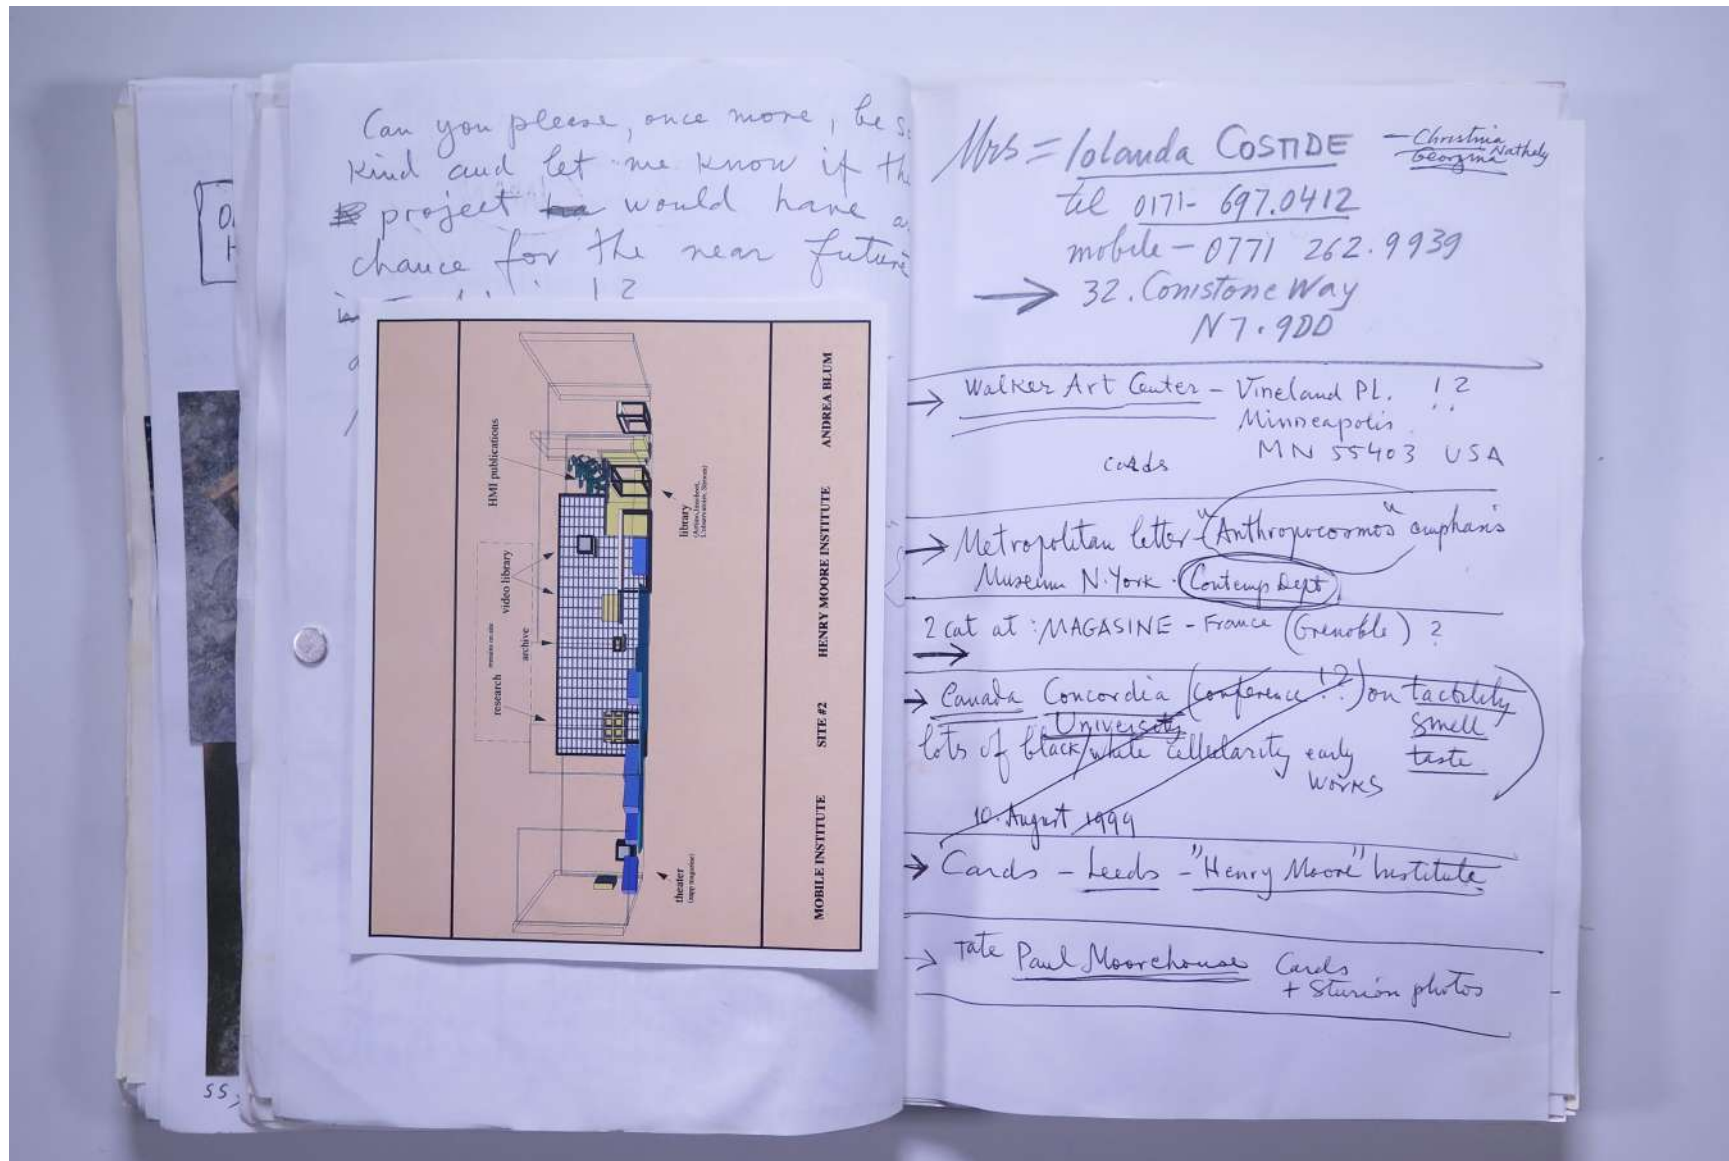 Can you please, once more, be s
kind and let me know if the
project would have a
chance for the near future
! ?
HMI publications
video library
archive
remains on site
research
library
theater
ANDREA BLUM
HENRY MOORE INSTITUTE
SITE #2
MOBILE INSTITUTE
55,
Mrs = Iolanda COSTIDE
– Christina
Georgina Nathely
tel 0171- 697.0412
mobile – 0771 262.9939
→ 32. Conistone Way
N7. 9DD
→ Walker Art Center – Vineland PL. !?
Minneapolis
cards MN 55403 USA
→ Metropolitan letter – "Anthropocosmos" emphasis
Museum N.York. Contemp Dept
2 cat at : MAGASINE – France (Grenoble) ?
→
→ Canada Concordia (conference !?) on tactility
University smell
lots of black/white cellularity early taste
works
10. August 1999
→ Cards – Leeds – "Henry Moore" Institute
→ Tate Paul Moorehouse Cards
+ Sturion photos